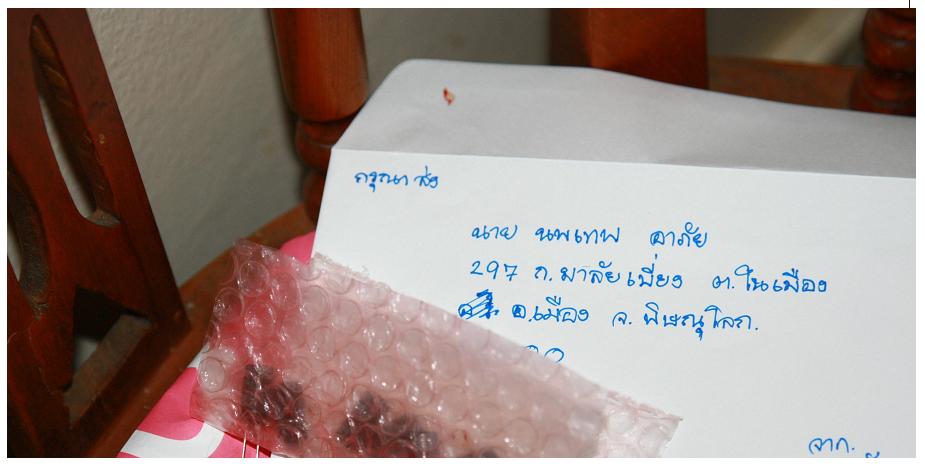 กรุณาส่ง
นาย นพเทพ อาภัย
297 ถ.มาลัยเบี่ยง ต.ในเมือง
อ.เมือง จ.พิษณุโลก.
จาก.